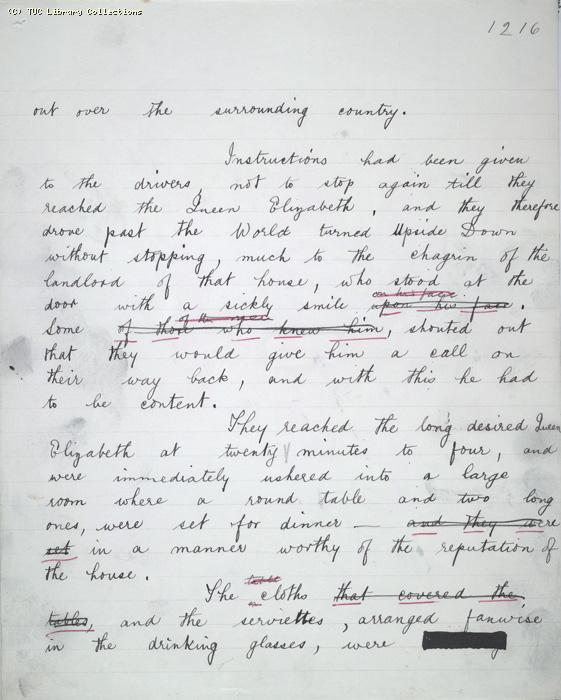 (C) TUC Library Collections
1216
out over the surrounding country.
Instructions had been given
to the drivers, not to stop again till they
reached the Queen Elizabeth, and they therefore
drove past the World turned Upside Down
without stopping, much to the chagrin of the
landlord of that house, who stood at the
on his face.
door with a sickly smile upon his face.
of the men
Some of those who knew him, shouted out
that they would give him a call on
their way back, and with this he had
to be content.
They reached the long desired Queen
Elizabeth at twenty minutes to four, and
were immediately ushered into a large
room where a round table and two long
ones, were set for dinner — and they were
set in a manner worthy of the reputation of
the house.
The cloths that covered the
tables, and the serviettes, arranged fanwise
in the drinking glasses, were